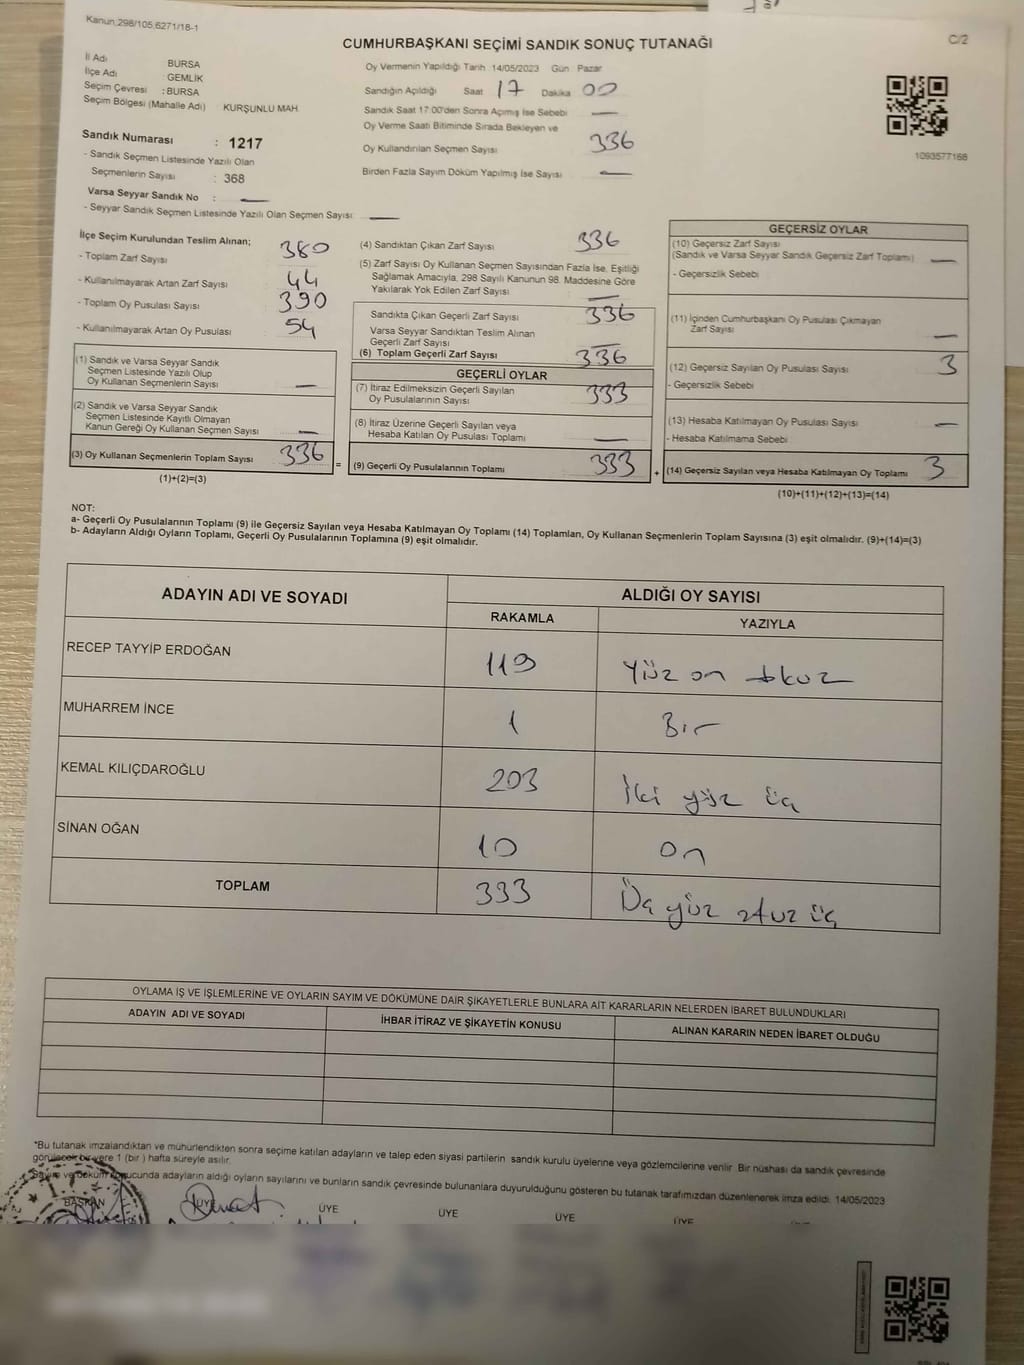 Kanun 298/105,6271/18-1
C/2
CUMHURBAŞKANI SEÇİMİ SANDIK SONUÇ TUTANAĞI
İl Adı BURSA
İlçe Adı : GEMLİK
Seçim Çevresi : BURSA
Seçim Bölgesi (Mahalle Adı) KURŞUNLU MAH
Sandık Numarası : 1217
- Sandık Seçmen Listesinde Yazılı Olan
Seçmenlerin Sayısı : 368
Varsa Seyyar Sandık No : —
- Seyyar Sandık Seçmen Listesinde Yazılı Olan Seçmen Sayısı —
Oy Vermenin Yapıldığı Tarih :14/05/2023 Gün : Pazar
Sandığın Açıldığı Saat 17 Dakika 00
Sandık Saat 17:00'den Sonra Açılmış İse Sebebi —
Oy Verme Saati Bitiminde Sırada Bekleyen ve
Oy Kullandırılan Seçmen Sayısı 336
Birden Fazla Sayım Döküm Yapılmış İse Sayısı —
1093577168
İlçe Seçim Kurulundan Teslim Alınan;
- Toplam Zarf Sayısı 380
- Kullanılmayarak Artan Zarf Sayısı 44
- Toplam Oy Pusulası Sayısı 390
- Kullanılmayarak Artan Oy Pusulası 54
(1) Sandık ve Varsa Seyyar Sandık
Seçmen Listesinde Yazılı Olup
Oy Kullanan Seçmenlerin Sayısı —
(2) Sandık ve Varsa Seyyar Sandık
Seçmen Listesinde Kayıtlı Olmayan
Kanun Gereği Oy Kullanan Seçmen Sayısı —
(3) Oy Kullanan Seçmenlerin Toplam Sayısı 336
(1)+(2)=(3)
=
(4) Sandıktan Çıkan Zarf Sayısı 336
(5) Zarf Sayısı Oy Kullanan Seçmen Sayısından Fazla İse, Eşitliği
Sağlamak Amacıyla, 298 Sayılı Kanunun 98. Maddesine Göre
Yakılarak Yok Edilen Zarf Sayısı —
Sandıkta Çıkan Geçerli Zarf Sayısı 336
Varsa Seyyar Sandıktan Teslim Alınan
Geçerli Zarf Sayısı —
(6) Toplam Geçerli Zarf Sayısı 336
GEÇERLİ OYLAR
(7) İtiraz Edilmeksizin Geçerli Sayılan
Oy Pusulalarının Sayısı 333
(8) İtiraz Üzerine Geçerli Sayılan veya
Hesaba Katılan Oy Pusulası Toplamı —
(9) Geçerli Oy Pusulalarının Toplamı 333
+
GEÇERSİZ OYLAR
(10) Geçersiz Zarf Sayısı
(Sandık ve Varsa Seyyar Sandık Geçersiz Zarf Toplamı) —
- Geçersizlik Sebebi
(11) İçinden Cumhurbaşkanı Oy Pusulası Çıkmayan
Zarf Sayısı —
(12) Geçersiz Sayılan Oy Pusulası Sayısı 3
- Geçersizlik Sebebi
(13) Hesaba Katılmayan Oy Pusulası Sayısı —
- Hesaba Katılmama Sebebi
(14) Geçersiz Sayılan veya Hesaba Katılmayan Oy Toplamı 3
(10)+(11)+(12)+(13)=(14)
NOT:
a- Geçerli Oy Pusulalarının Toplamı (9) ile Geçersiz Sayılan veya Hesaba Katılmayan Oy Toplamı (14) Toplamları, Oy Kullanan Seçmenlerin Toplam Sayısına (3) eşit olmalıdır. (9)+(14)=(3)
b- Adayların Aldığı Oyların Toplamı, Geçerli Oy Pusulalarının Toplamına (9) eşit olmalıdır.
ADAYIN ADI VE SOYADI
ALDIĞI OY SAYISI
RAKAMLA YAZIYLA
RECEP TAYYİP ERDOĞAN 119 Yüz on dokuz
MUHARREM İNCE 1 Bir
KEMAL KILIÇDAROĞLU 203 İki yüz üç
SİNAN OĞAN 10 on
TOPLAM 333 Üç yüz otuz üç
OYLAMA İŞ VE İŞLEMLERİNE VE OYLARIN SAYIM VE DÖKÜMÜNE DAİR ŞİKAYETLERLE BUNLARA AİT KARARLARIN NELERDEN İBARET BULUNDUKLARI
ADAYIN ADI VE SOYADI İHBAR İTİRAZ VE ŞİKAYETİN KONUSU ALINAN KARARIN NEDEN İBARET OLDUĞU
*Bu tutanak imzalandıktan ve mühürlendikten sonra seçime katılan adayların ve talep eden siyasi partilerin sandık kurulu üyelerine veya gözlemcilerine verilir. Bir nüshası da sandık çevresinde
görülecek bir yere 1 (bir ) hafta süreyle asılır.
Sayım ve döküm sonucunda adayların aldığı oyların sayılarını ve bunların sandık çevresinde bulunanlara duyurulduğunu gösteren bu tutanak tarafımızdan düzenlenerek imza edildi. 14/05/2023
BAŞKAN ÜYE ÜYE ÜYE ÜYE ÜYE